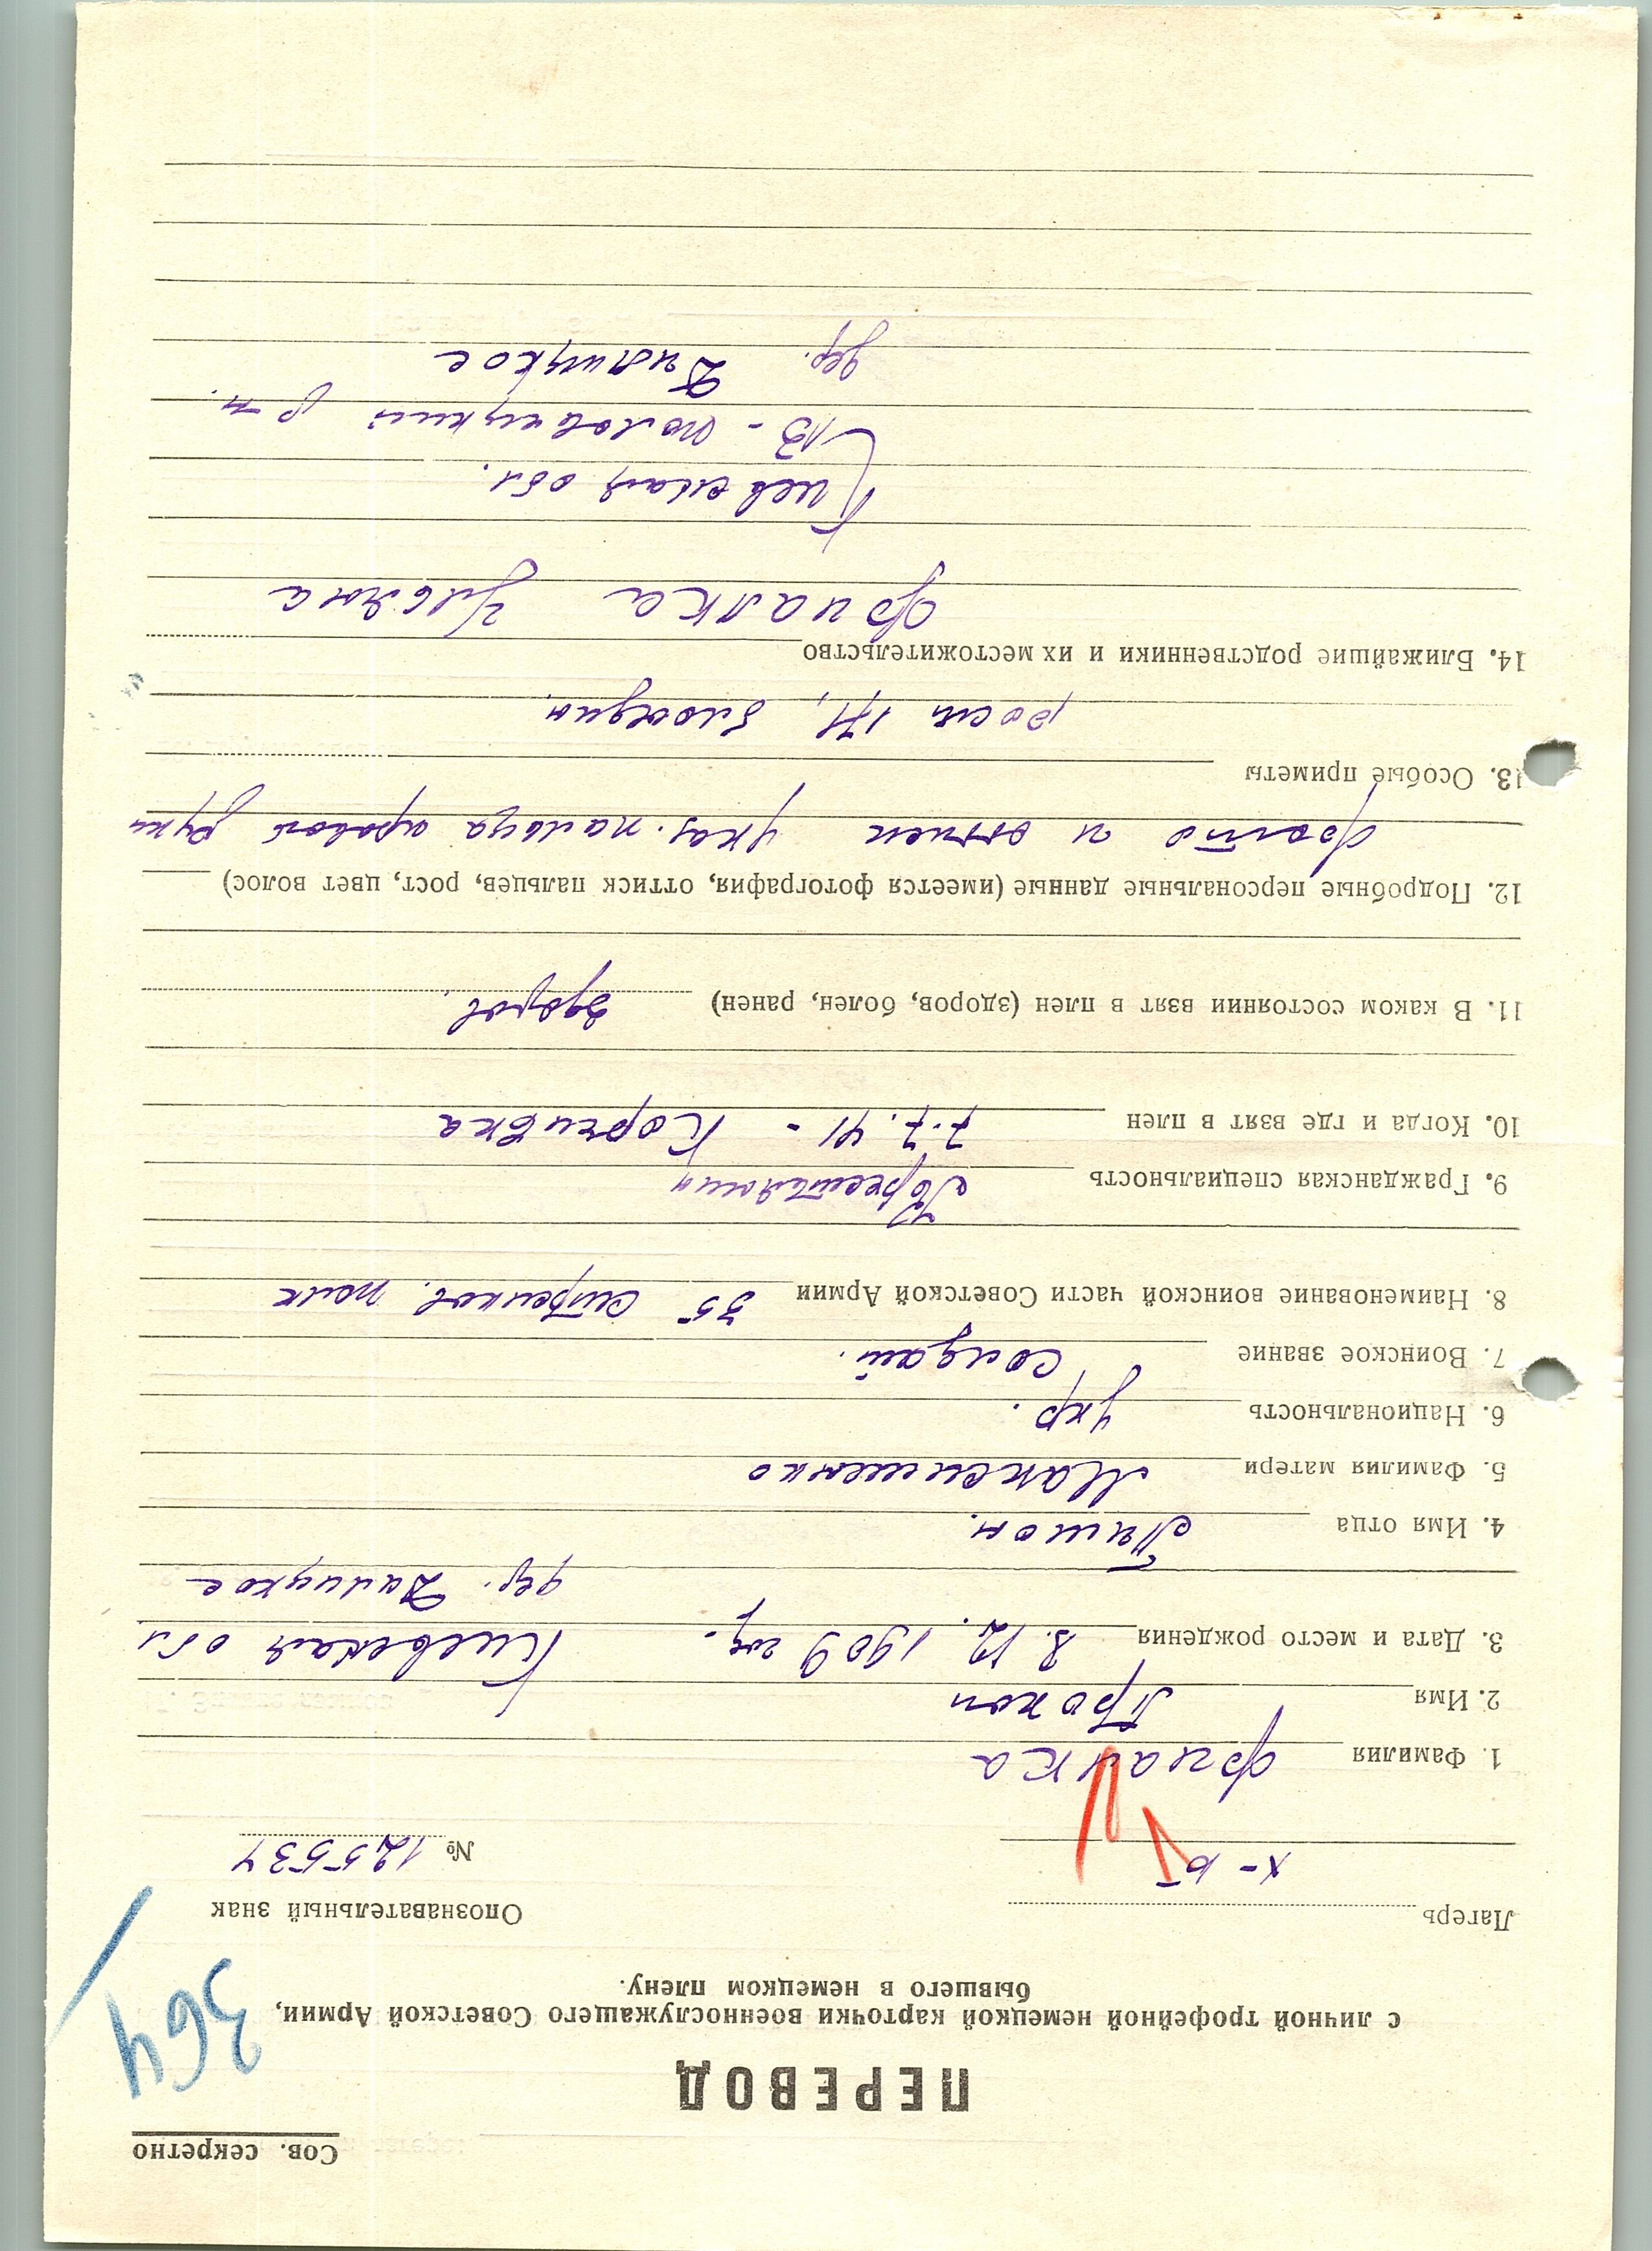 Сов. секретно
364
ПЕРЕВОД
с личной трофейной немецкой карточки военнослужащего Советской Армии,
бывшего в немецком плену.
Лагерь Х-Б Опознавательный знак
№ 125534
1. Фамилия Фиалка
2. Имя Прокоп
3. Дата и место рождения 8.12.1909 Киевская обл
дер.
4. Имя отца Тимон.
5. Фамилия матери Максименко
6. Национальность укр.
7. Воинское звание солдат.
8. Наименование воинской части Советской Армии 35 стрелков. полк
9. Гражданская специальность Крестьянин
10. Когда и где взят в плен 7.7.41 - Корчивка
11. В каком состоянии взят в плен (здоров, болен, ранен) здоров.
12. Подробные персональные данные (имеется фотография, оттиск пальцев, рост, цвет волос)
фото и оттиск указ. пальца правой руки
13. Особые приметы
рост 171, блондин.
14. Ближайшие родственники и их местожительство
Фиалка Ульяна
Киевская обл.
р-н.
дер.